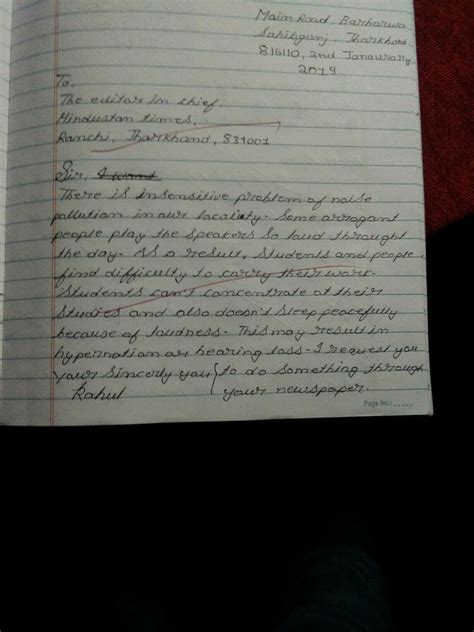 Main Road-Barharwa
Sahibganj, Jharkhand
816110, 2nd Janaurary
2019
To,
The editor in chief.
Hindustan times,
Ranchi, Jharkhand, 834001
Sir, I want
There is insensitive problem of noise
pollution in our locaiety. Some arrogant
people play the speakers so loud throught
the day. As a result, Students and people
find difficulty to carry their work.
Students can't concentrate at their
studies and also doesn't sleep peacefully
because of loudness. This may result in
hypernation or hearing loss. I request you
your sincerly you { to do something through
Rahul your newspaper.
Page No.: